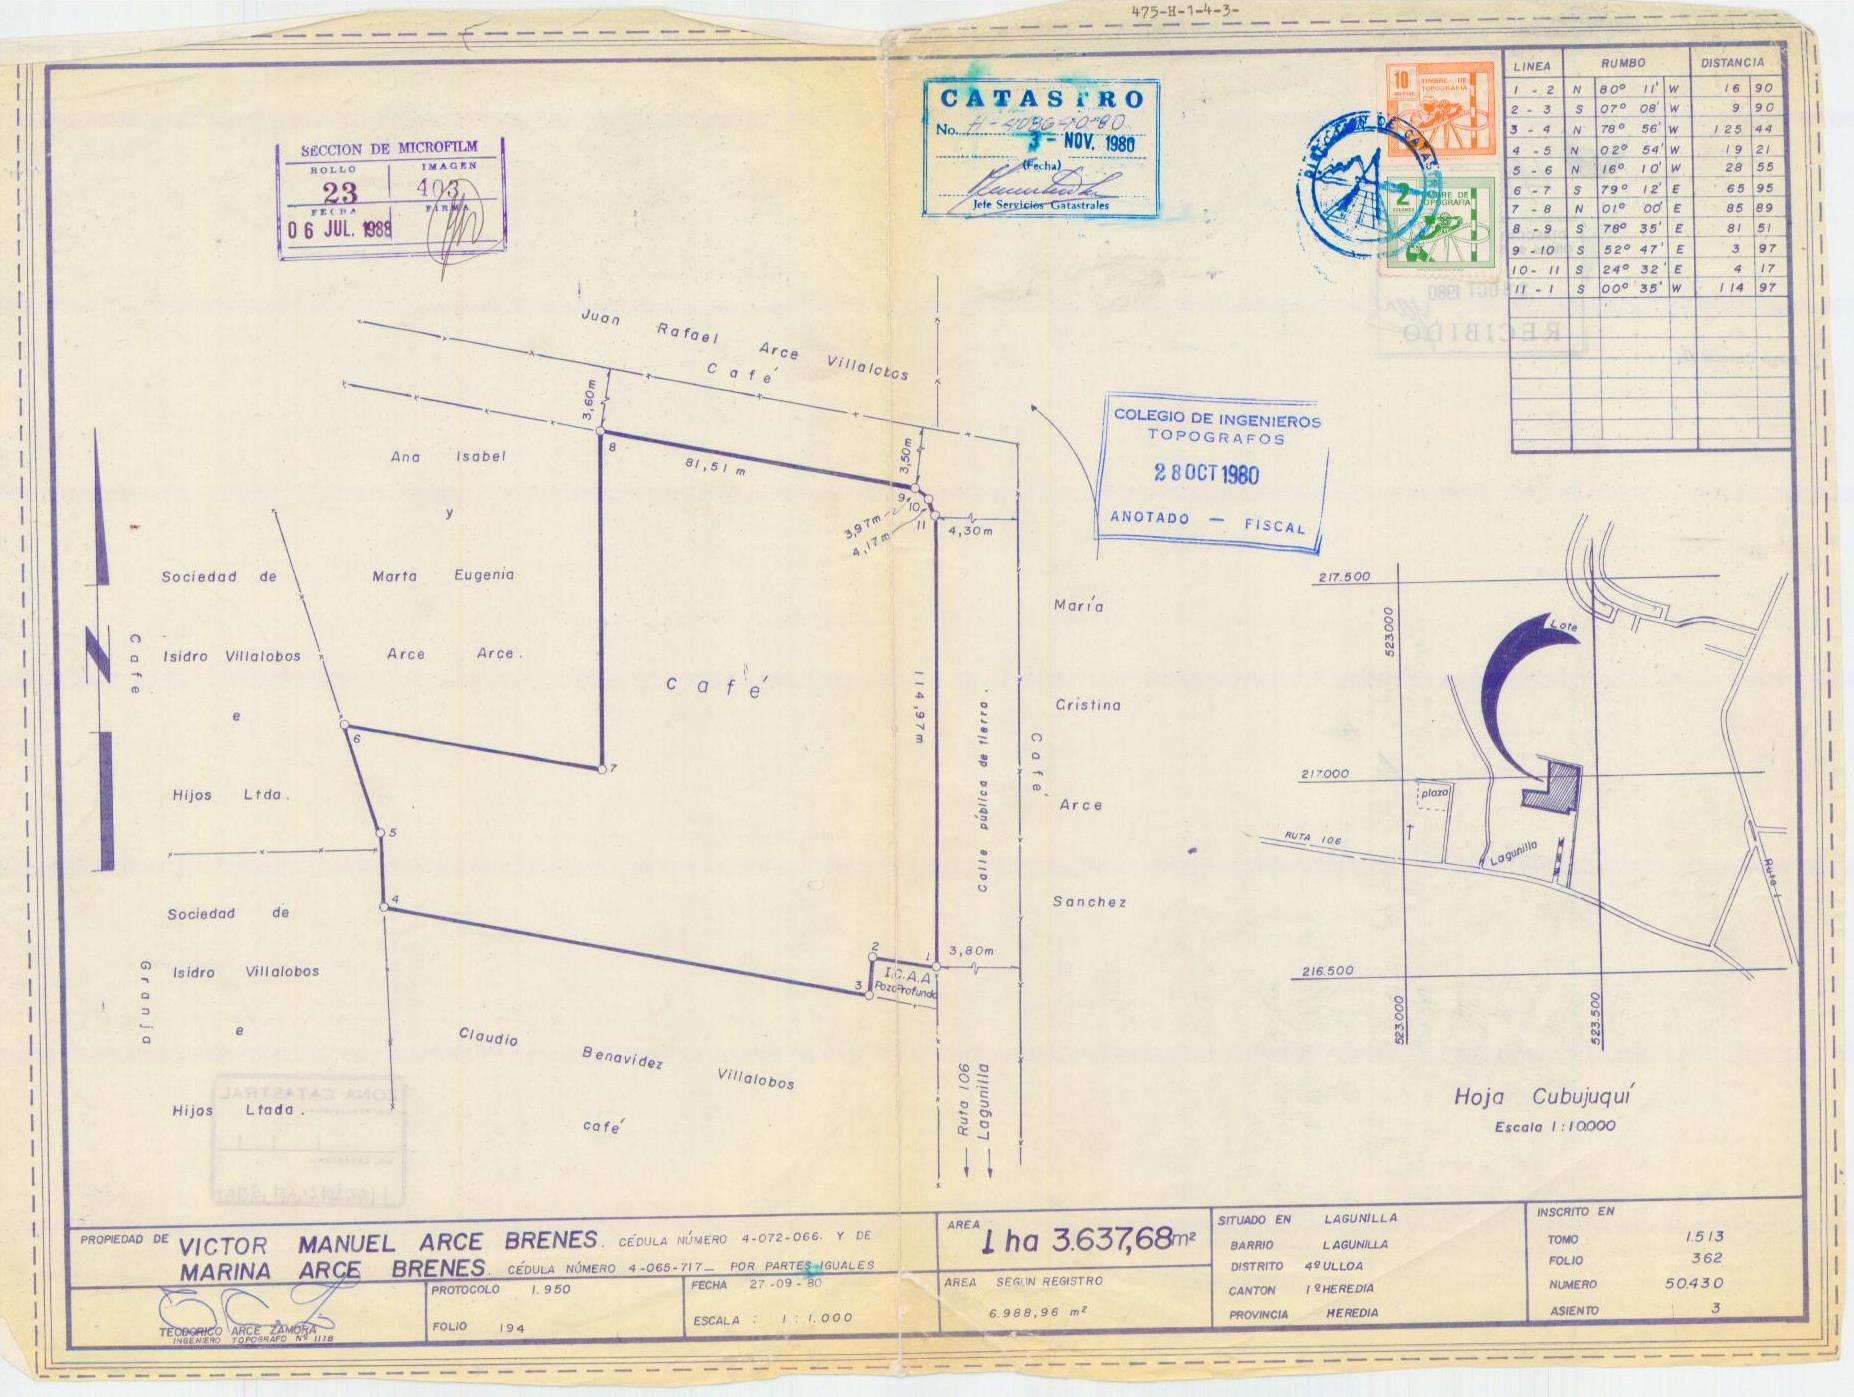 475-H-1-4-3-
SECCION DE MICROFILM
ROLLO IMAGEN
23 403
FECHA FIRMA
06 JUL. 1988
CATASTRO
No.
3 - NOV. 1980
(Fecha)
Jefe Servicios Catastrales
DIRECCION DE CATASTRO
10 TIMBRE DE
TOPOGRAFIA
2 TIMBRE DE
COLONES TOPOGRAFIA
LINEA RUMBO DISTANCIA
1 - 2 N 80° 11' W 16 90
2 - 3 S 07° 08' W 9 90
3 - 4 N 78° 56' W 125 44
4 - 5 N 02° 54' W 19 21
5 - 6 N 16° 10' W 28 55
6 - 7 S 79° 12' E 65 95
7 - 8 N 01° 00' E 85 89
8 - 9 S 78° 35' E 81 51
9 - 10 S 52° 47' E 3 97
10 - 11 S 24° 32' E 4 17
11 - 1 S 00° 35' W 114 97
OCT 1980
RECIBIDO
COLEGIO DE INGENIEROS
TOPOGRAFOS
28 OCT 1980
ANOTADO — FISCAL
Juan Rafael Arce Villalobos
Café
3,60m
8
81,51 m
3,50m
9
10
11
3,97m
4,17m
4,30m
Ana Isabel
y
Marta Eugenia
Arce Arce.
Sociedad de
Isidro Villalobos
e
Hijos Ltda.
Cafe
N
6
7
5
4
café
114,97m
Calle pública de tierra.
Café
María
Cristina
Arce
Sanchez
Sociedad de
Isidro Villalobos
e
Hijos Ltada.
Granja
2
1
3
I.C.A.A
Pozo Profundo
3,80m
Claudio Benavidez Villalobos
café
Ruta 106
Lagunilla
217.500
523.000
Lote
217.000
plaza
RUTA 106
Lagunilla
Ruta 1
216.500
523.000
523.500
Hoja Cubujuquí
Escala 1:10.000
ZONA CATASTRAL
PROPIEDAD DE VICTOR MANUEL ARCE BRENES. CÉDULA NÚMERO 4-072-066. Y DE
MARINA ARCE BRENES. CÉDULA NÚMERO 4-065-717— POR PARTES IGUALES
TEODORICO ARCE ZAMORA
INGENIERO TOPOGRAFO Nº 1118
PROTOCOLO 1.950
FOLIO 194
FECHA 27-09-80
ESCALA : 1 : 1.000
AREA
1 ha 3.637,68m²
AREA SEGUN REGISTRO
6.988,96 m²
SITUADO EN LAGUNILLA
BARRIO LAGUNILLA
DISTRITO 4º ULLOA
CANTON 1º HEREDIA
PROVINCIA HEREDIA
INSCRITO EN
TOMO 1.513
FOLIO 362
NUMERO 50.430
ASIENTO 3